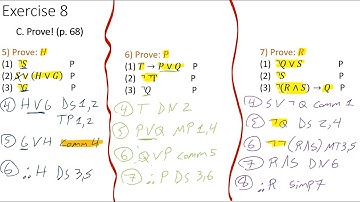 Exercise 8
C. Prove! (p. 68)
5) Prove: H
(1) ˥S P
(2) S ∨ (H ∨ G) P
(3) ˥G P
④ H∨G DS 1,2
TP 1,2
⑤ G∨H Comm 4
⑥ ∴H DS 3,5
6) Prove: P
(1) T → P ∨ Q P
(2) ˥˥T P
(3) ˥Q P
④ T DN 2
⑤ P∨Q MP 1,4
⑥ Q∨P comm 5
⑦ ∴P DS 3,6
7) Prove: R
(1) ˥Q ∨ S P
(2) ˥S P
(3) ˥(R ∧ S) → Q P
④ S∨˥Q comm 1
⑤ ˥Q DS 2,4
⑥ ˥˥(R∧S) MT 3,5
⑦ R∧S DN 6
⑧ ∴R simp 7